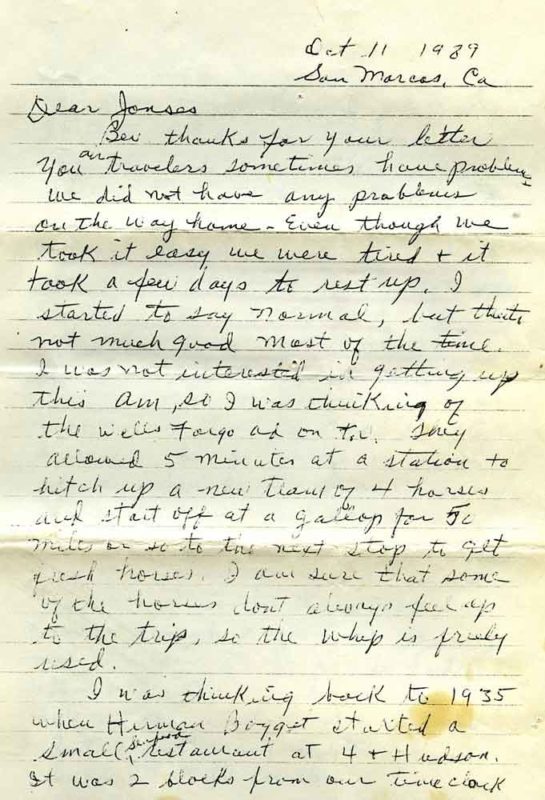 Oct 11 1989
San Marcos, Ca
Dear Jonses
Bev thanks for your letter
You are travelers sometimes have problems
we did not have any problems
on the way home - Even though we
took it easy we were tired + it
took a few days to rest up. I
started to say normal, but thats
not much good most of the time.
I was not interested in getting up
this am, so I was thinking of
the wells Fargo ad on tv. They
allowed 5 minutes at a station to
hitch up a new team of 4 horses
and start off at a gallop for 50
miles or so to the next stop to get
fresh horses. I am sure that some
of the horses dont always feel up
to the trip, so the whip is freely
used.
I was thinking back to 1935
when Herman started a
small seafood restaurant at 4 + Hudson.
It was 2 blocks from our timeclock